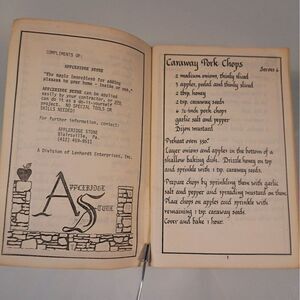 COMPLIMENTS OF:
APPLERIDGE STONE
"The magic ingredient for adding
pleasure to your home - inside or out."
APPLERIDGE STONE can be applied
easily by your contractor, or you
can do it as a do-it-yourself
project. NO SPECIAL TOOLS OR
SKILLS NEEDED!
For further information, contact:
APPLERIDGE STONE
Blairsville, Pa.
(412) 459-9511
A Division of Lenhardt Enterprises, Inc.
APPLERIDGE
STONE
Caraway Pork Chops
Serves 6
2 medium onions, thinly sliced
3 apples, peeled and thinly sliced
2 tbsp. honey
2 tsp. caraway seeds
6 ½-inch pork chops
garlic salt and pepper
Dijon mustard
Preheat oven 350°
Layer onions and apples in the bottom of a
shallow baking dish. Drizzle honey on top
and sprinkle with 1 tsp. caraway seeds.
Prepare chops by sprinkling them with garlic
salt and pepper and spreading mustard on them.
Place chops on apples and sprinkle with
remaining 1 tsp. caraway seeds.
Cover and bake 1 hour.
1